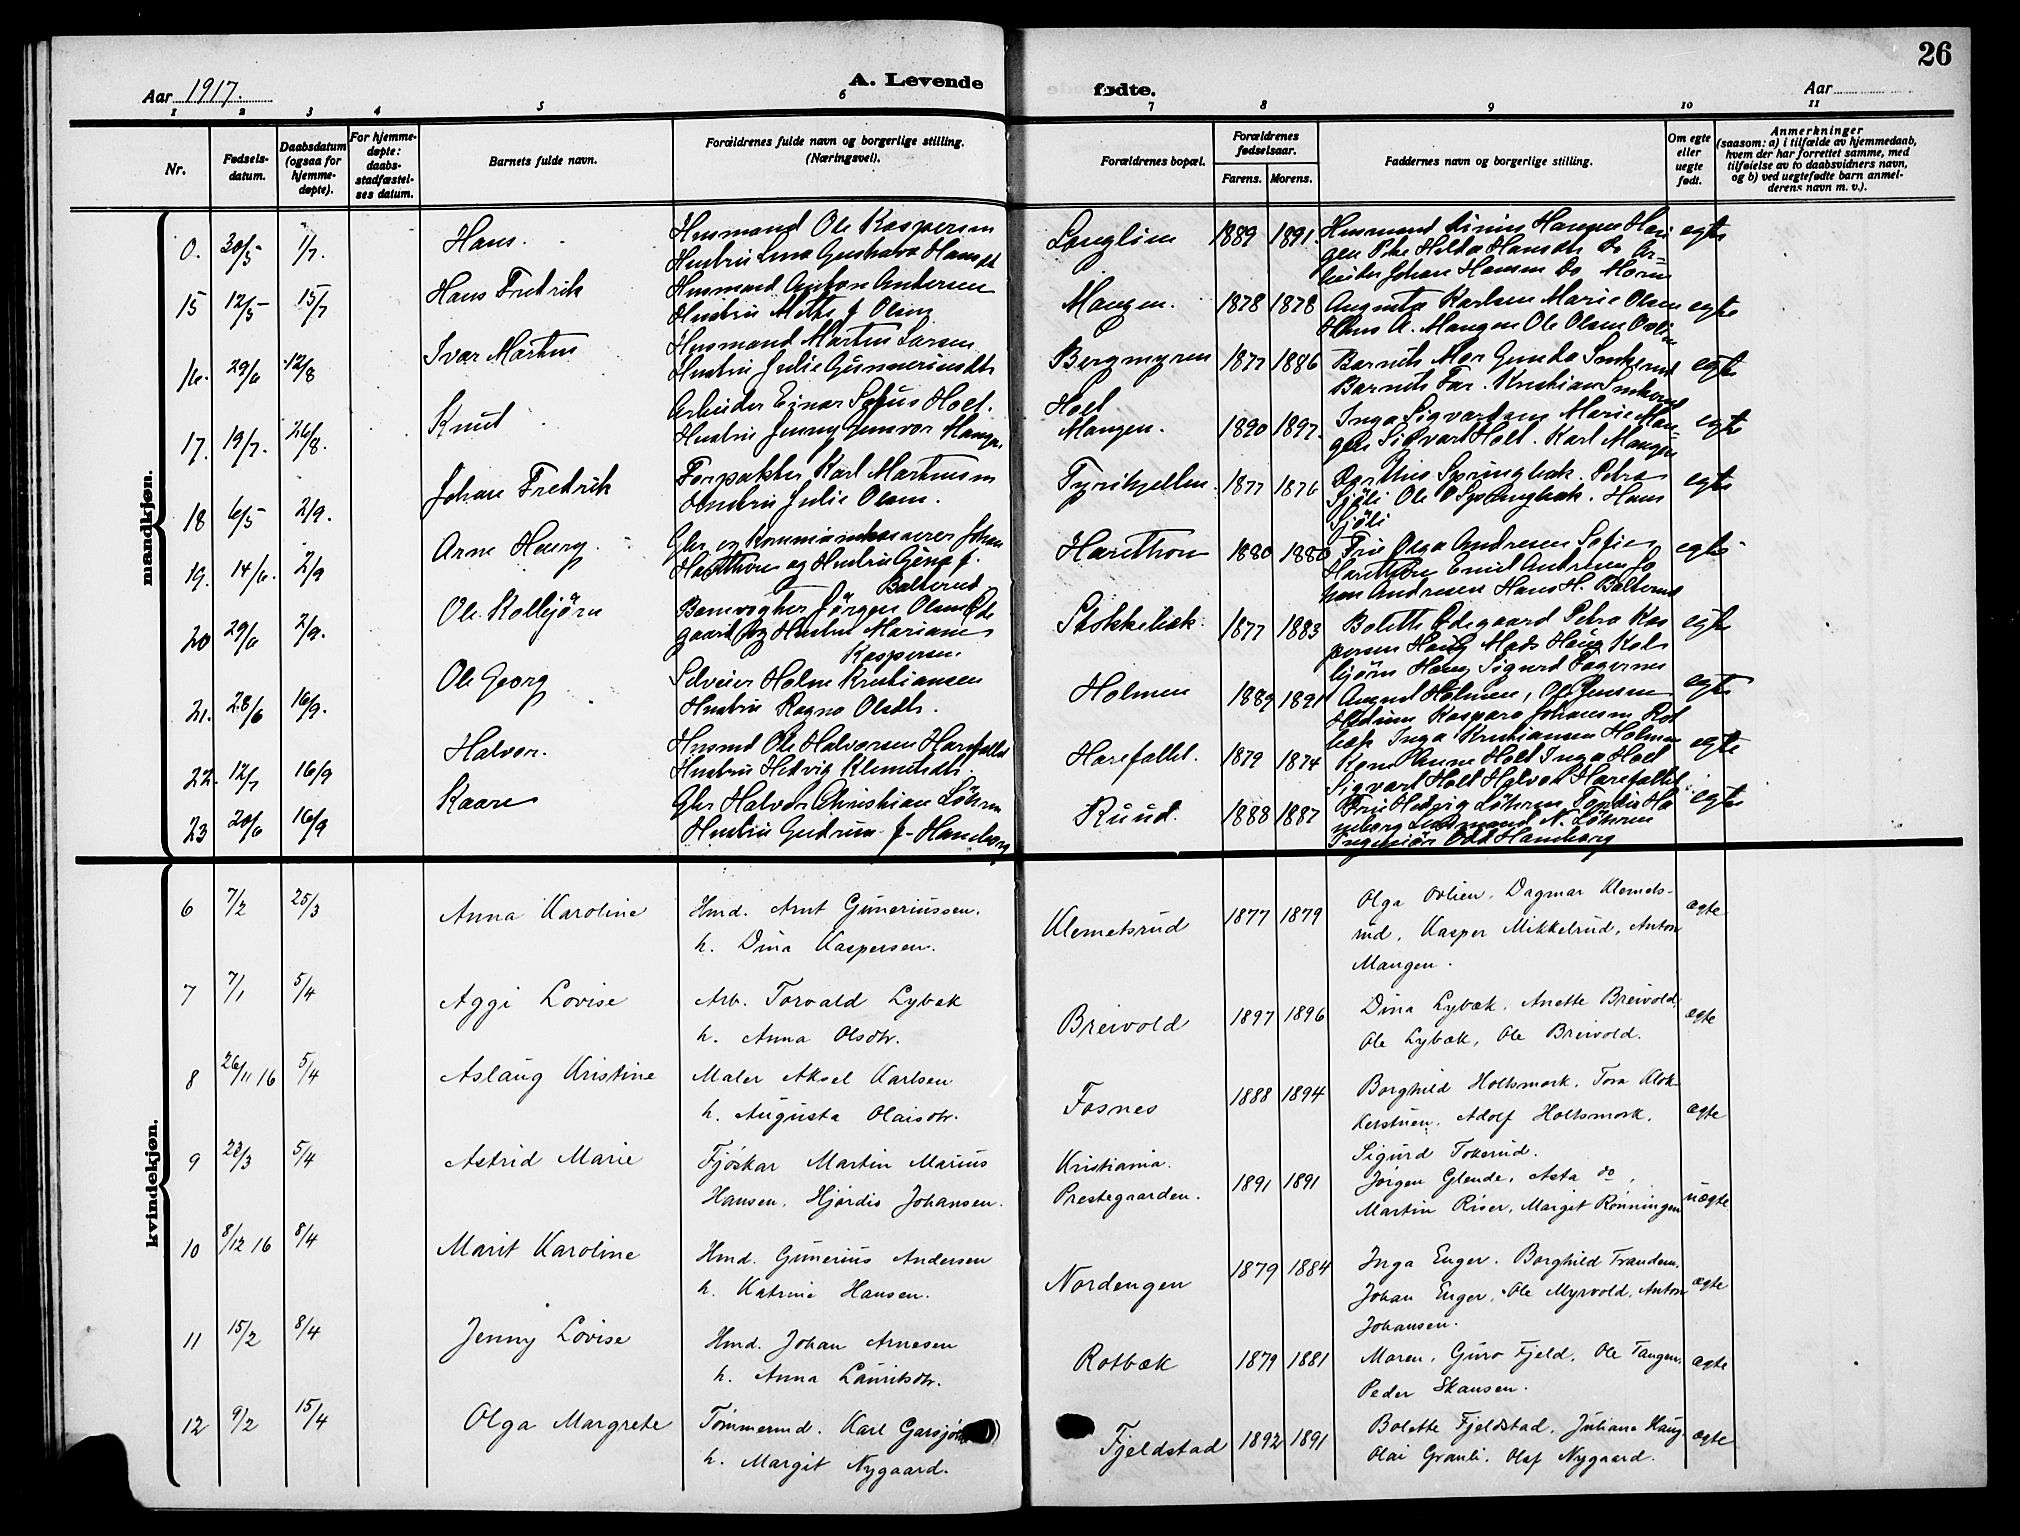 26
Aar 1917.
A. Levende fødte.
Aar
1 2 3 4 5 6 7 8 9 10 11
Nr.
Fødsels-
datum.
Daabsdatum
(ogsaa for
hjemme-
døpte).
For hjemme-
døpte:
daabs-
stadfæstel-
ses datum.
Barnets fulde navn.
Forældrenes fulde navn og borgerlige stilling.
(Næringsvei).
Forældrenes bopæl.
Forældrenes
fødselsaar.
Farens. Morens.
Faddernes navn og borgerlige stilling.
Om egte
eller
uegte
født.
Anmerkninger
(saasom: a) i tilfælde av hjemmedaab,
hvem der har forrettet samme, med
tilføielse av to daabsvidners navn,
og b) ved uegtefødte barn anmel-
derens navn m. v.).
mandkjøn.
0. 30/5 1/7. Hans.
Husmand Ole Kaspersen
Hustru Gustava Hansdt
1889 1891. egte
15 12/5 15/7 Hans Fredrik
Husmand Anton Andersen
Hustru Mette J Olsen
Mangen. 1878 1878
Augusta Karlsen Marie Olsen
Hans A. Mangen Ole Olsen
egte
16. 29/6 12/8 Ivar Martin
Husmand Martin Larsen
Hustru Julie Gunneriusdtr
Bergmyren 1877 1886
Barnets Mor Gunda
Barnets Far. Kristian
egte
17. 19/7. 26/8. Knut
Arbeider Einar Sofus Holt.
Hustru Jenny Gunvor Mangen
Holt
Mangen. 1890 1897.
Inga Sigvartsen Marie Man-
gen Sigvart Holt. Karl Mangen
egte
18 6/5 2/9. Johan Fredrik
Forpakter Karl Martinsen
Hustru Julie Olsen.
Tyrihjellen. 1877 1876
Springbæk. Petra
Sjøli Ole O Springbæk. Hans
Sjøli
egte
19. 14/6. 2/9 Arne Henry.
Gbr og Johan
Harethon og Hustru Gina J.
Balterud
Harethon 1880 1880
Fru Olga Andresen Sofie
Harethon Emil Andresen Jo
han Andresen Hans H. Balterud
egte
20 29/6 2/9. Ole Kolbjörn
Banevogter Jörgen Olsen Øde
gaard og Hustru Mariane
Kaspersen
Stokkebæk 1877 1883
Bolette Ødegaard Petra Kas
persen Haug Mads Haug Kol
björn Haug Sigurd Fagernes
egte
21. 28/6 16/9. Ole Georg
Selveier Holm Kristiansen
Hustru Ragna Olsdtr.
Holmen 1889 1891
August Holmen, Ole Jensen
Kaspara Johansen Rot
bæk Inga Kristiansen Holmen
egte
22. 12/7 16/9 Halvor.
Husmd Ole Halvorsen Harefallet
Hustru Hedvig Klemetsdtr.
Harefallet. 1879 1874
Kone Anne Holt Inga Holt
Sigvart Holt Halvor Harefallet
egte
23 20/6 16/9 Kaare
Gbr Halvor Christian Löhren
Hustru Gudrun J. Haneborg
Ruud. 1888 1887
Fru Hedvig Löhren Ha
neborg N. Löhren
Ingeniör Odd Haneborg
egte
kvindekjøn.
6 7/2 25/3 Anna Karoline
Hmd. Arnt Guneriussen.
h. Dina Kaspersen.
Klemetsrud 1877 1879
Olga Ovlien. Dagmar Klemets-
rud, Kasper Mikkelrud, Anton
Mangen.
ægte
7 7/1 5/4 Aggi Lovise
Arb. Torvald Lybæk
h. Anna Olsdtr.
Breivold 1897 1896
Dina Lybæk. Anette Breivold
Ole Lybæk, Ole Breivold.
ægte
8 26/11 16 5/4 Aslaug Kristine
Maler Aksel Karlsen
h. Augusta Olaisdtr.
Fosnes 1888 1894
Borghild Holtsmark. Tora Klok-
kerstuen. Adolf Holtsmark.
Sigurd Tokerud.
ægte
9 22/3 5/4 Astrid Marie
Fjøskar Martin Marius
Hansen. Hjørdis Johansen.
Kristiania.
Prestegaarden. 1891 1891
Jørgen Glende, Asta do,
Martin Riser, Margit Rønningen
uægte
10 8/12 16 8/4 Marit Karoline
Hmd. Gunerius Andersen
h. Katrine Hansen.
Nordengen 1879 1884
Inga Enger. Borghild Trandem,
Johan Enger, Ole Myrvold, Anton
Johansen.
ægte
11 15/2 8/4 Jenny Lovise
Hmd. Johan Arnesen
h. Anna Lauritsdtr.
Rotbæk 1879 1881
Maren, Guro Fjeld, Ole Tangen,
Peder Skansen.
ægte
12 9/2 15/4 Olga Margrete
Tømmermd. Karl
h. Margit Nygaard.
Fjeldstad 1892 1891
Bolette Fjeldstad, Juliane Haug,
Olai Granli, Olaf Nygaard.
ægte